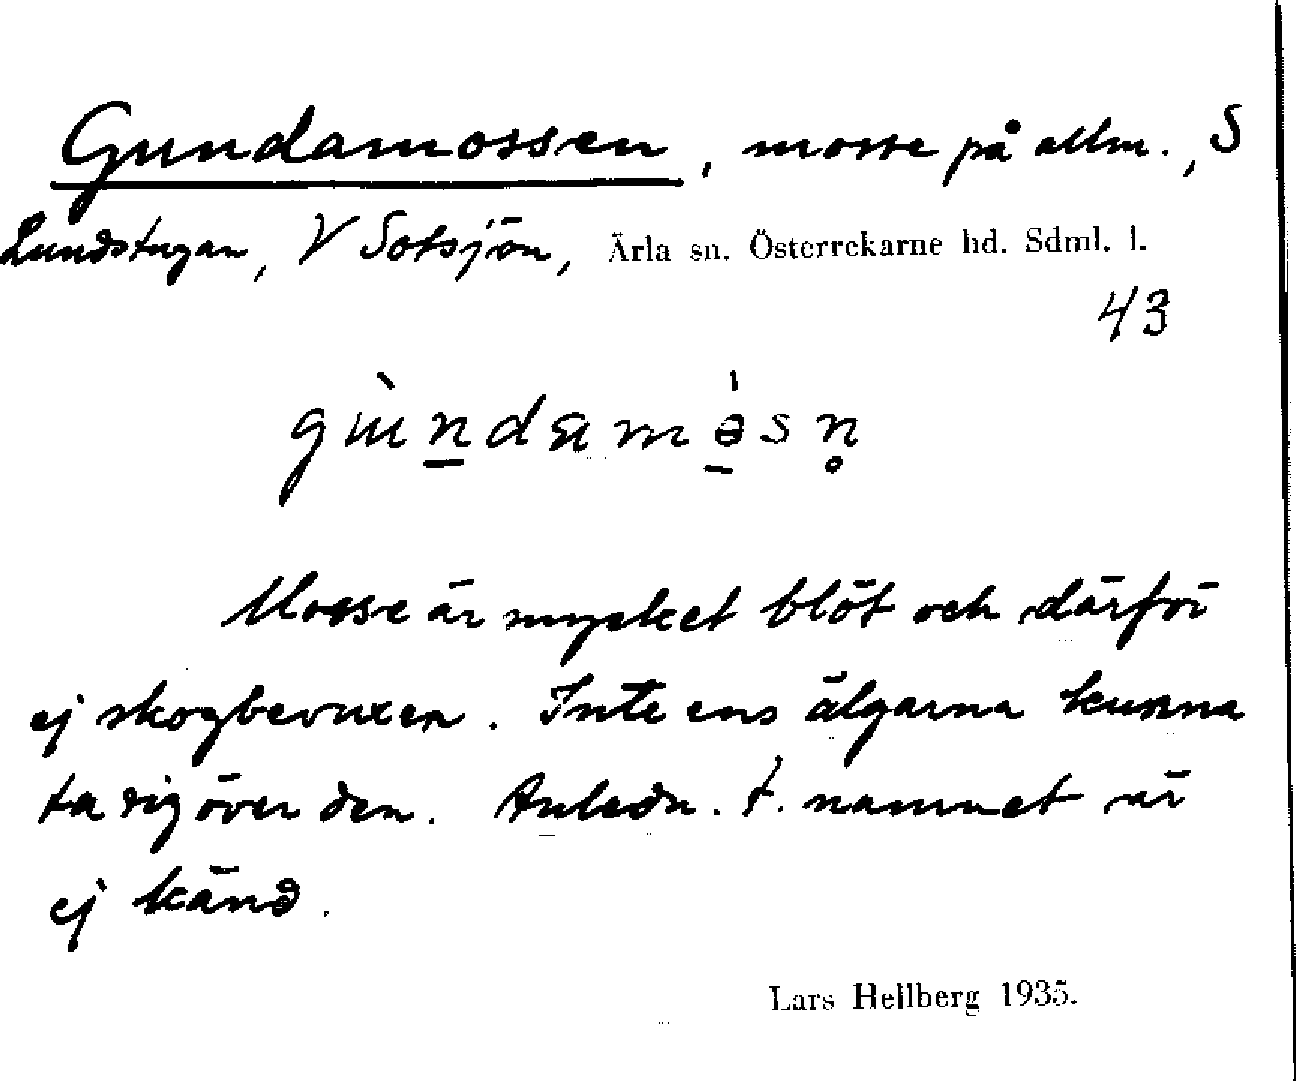 Gundamossen, mosse på allm., S
Lundstugan, V Sotsjön, Ärla sn. Österrekarne hd. Sdml. l.
43
Mosse är mycket blöt och därför
ej skogbevuxen. Inte ens älgarna kunna
ta sig över den. Anledn. t. namnet är
ej känd.
Lars Hellberg 1935.